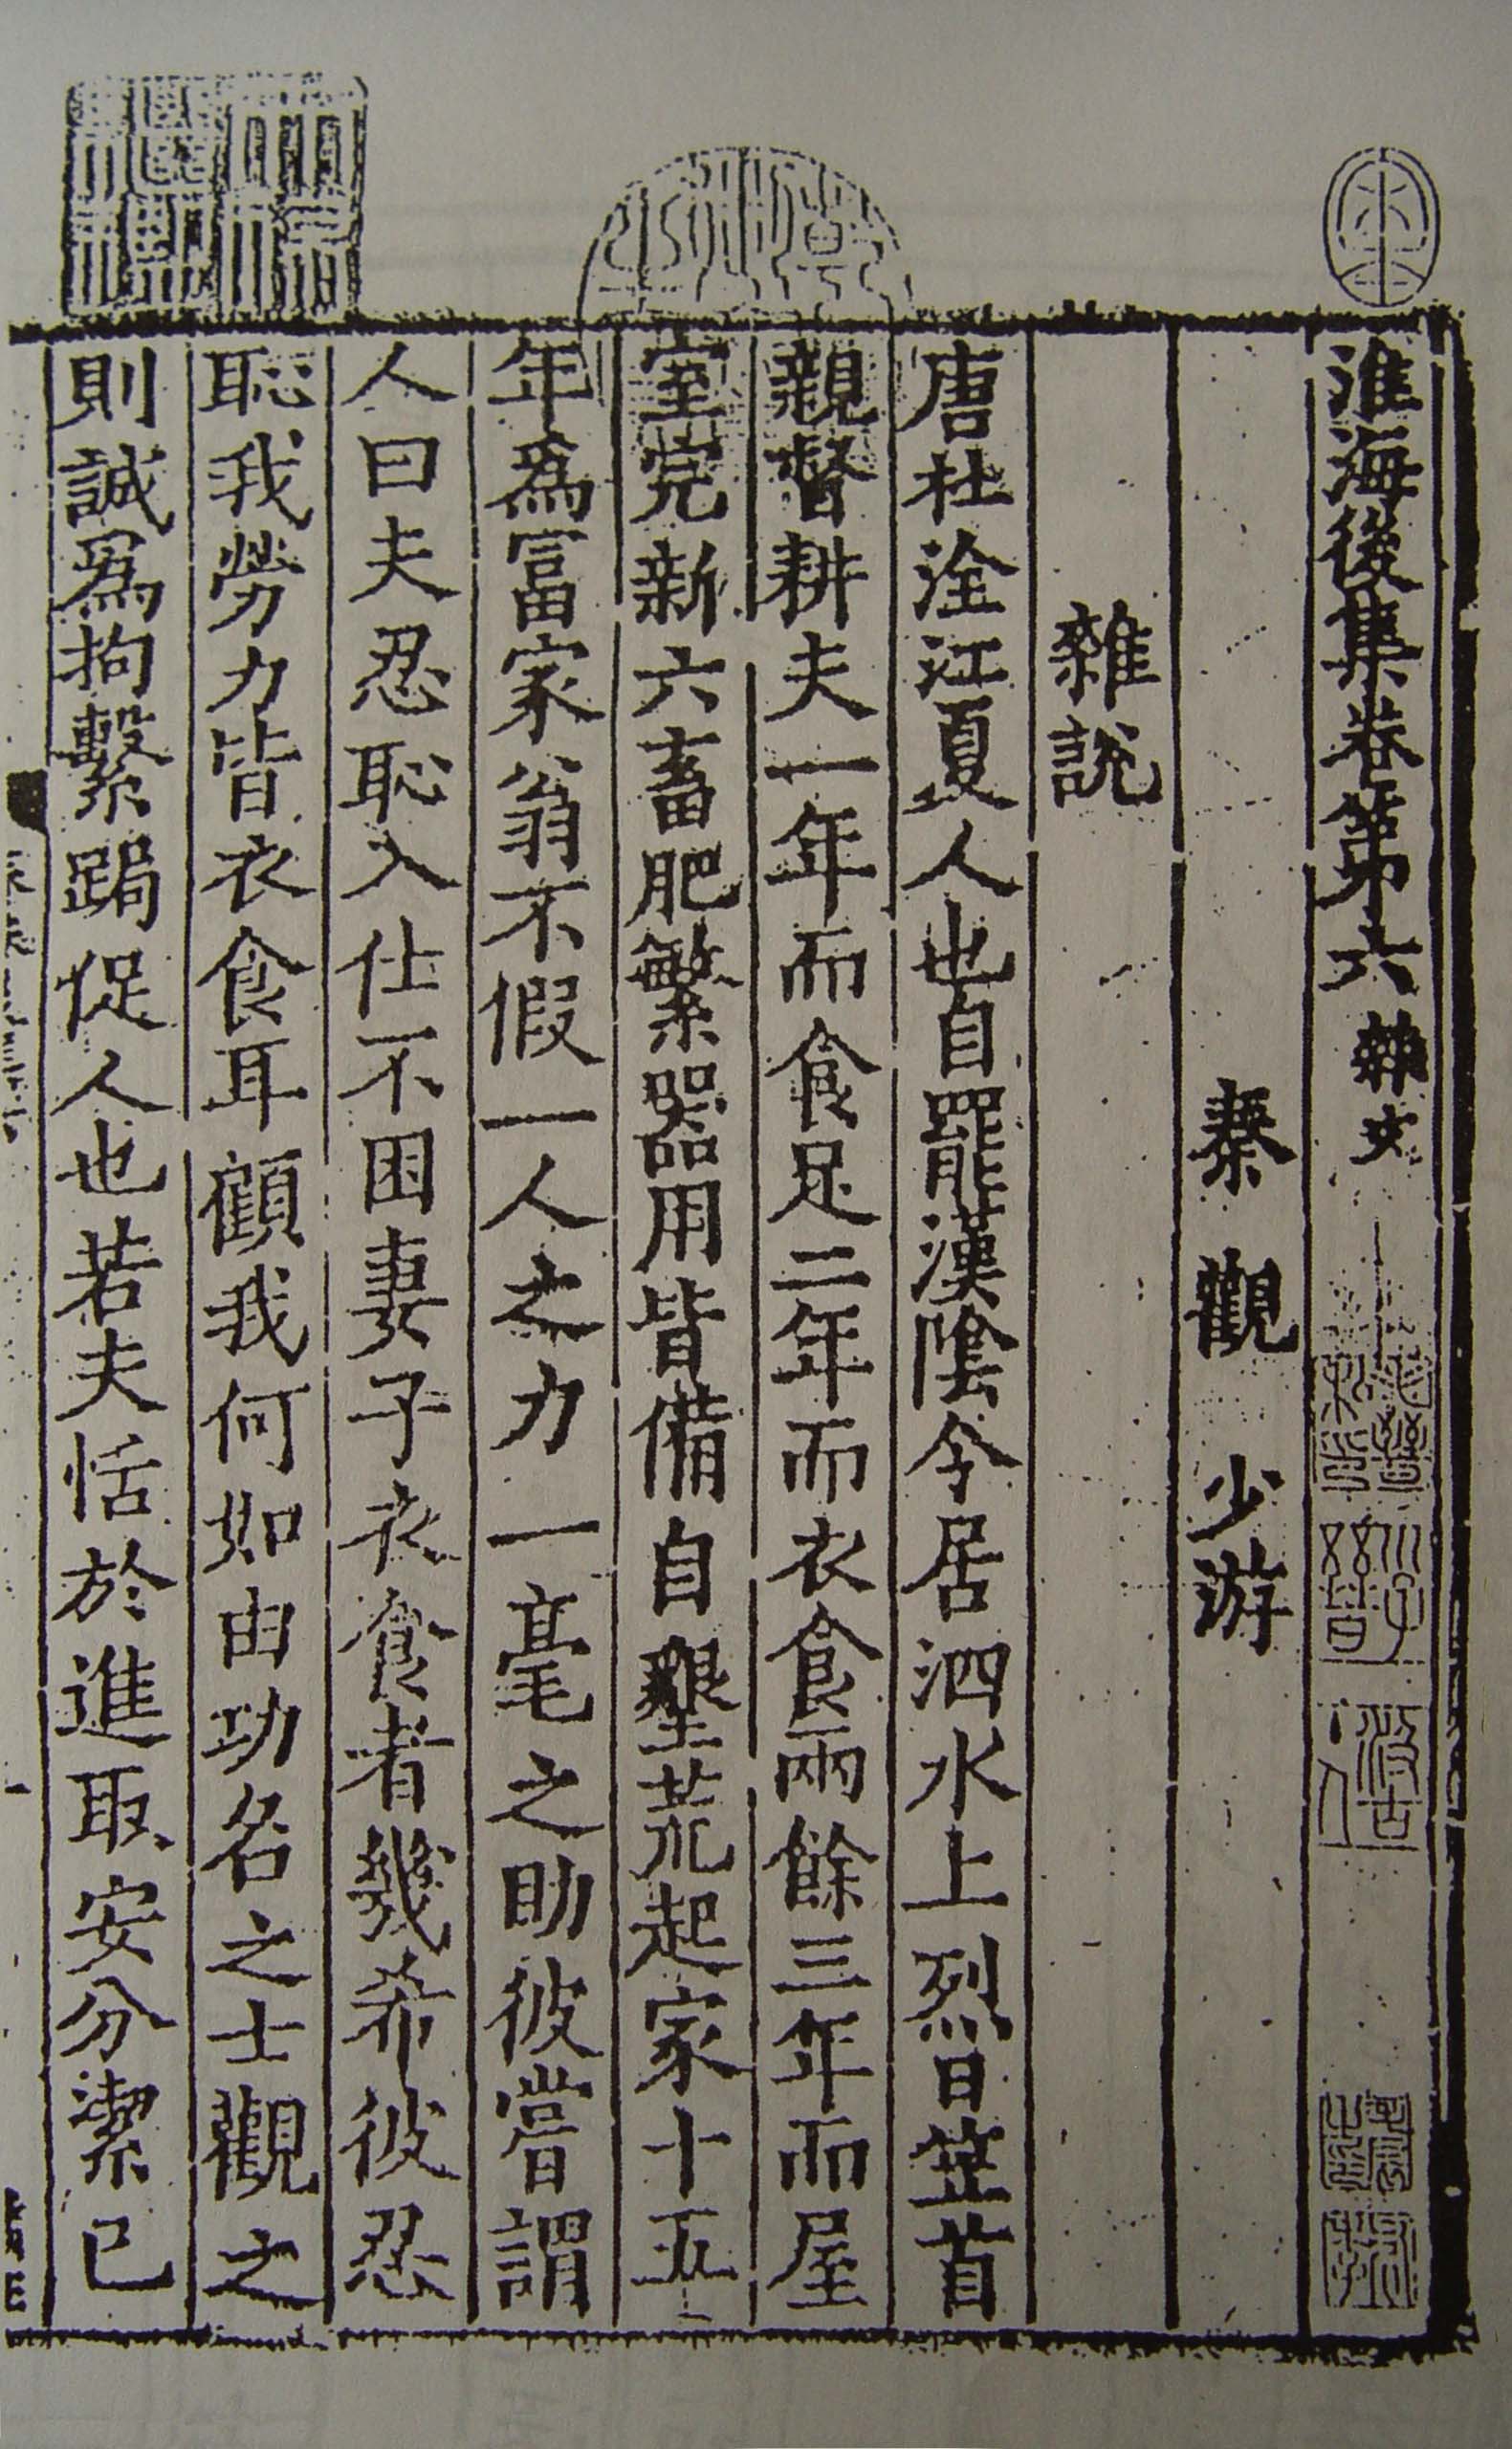 淮海後集卷第六 雜文
秦觀 少游
雜說
唐杜淦江夏人也自罷漢隂令居泗水上烈日笠首
親督耕夫一年而食足二年而衣食兩餘三年而屋
室完新六畜肥繁器用皆備自墾荒起家十五
年爲富家翁不假一人之力一毫之助彼嘗謂
人曰夫忍恥入仕不困妻子衣食者幾希彼忍
恥我勞力皆衣食耳顧我何如由功名之士觀之
則誠爲拘繫跼促人也若夫恬於進取安分潔已